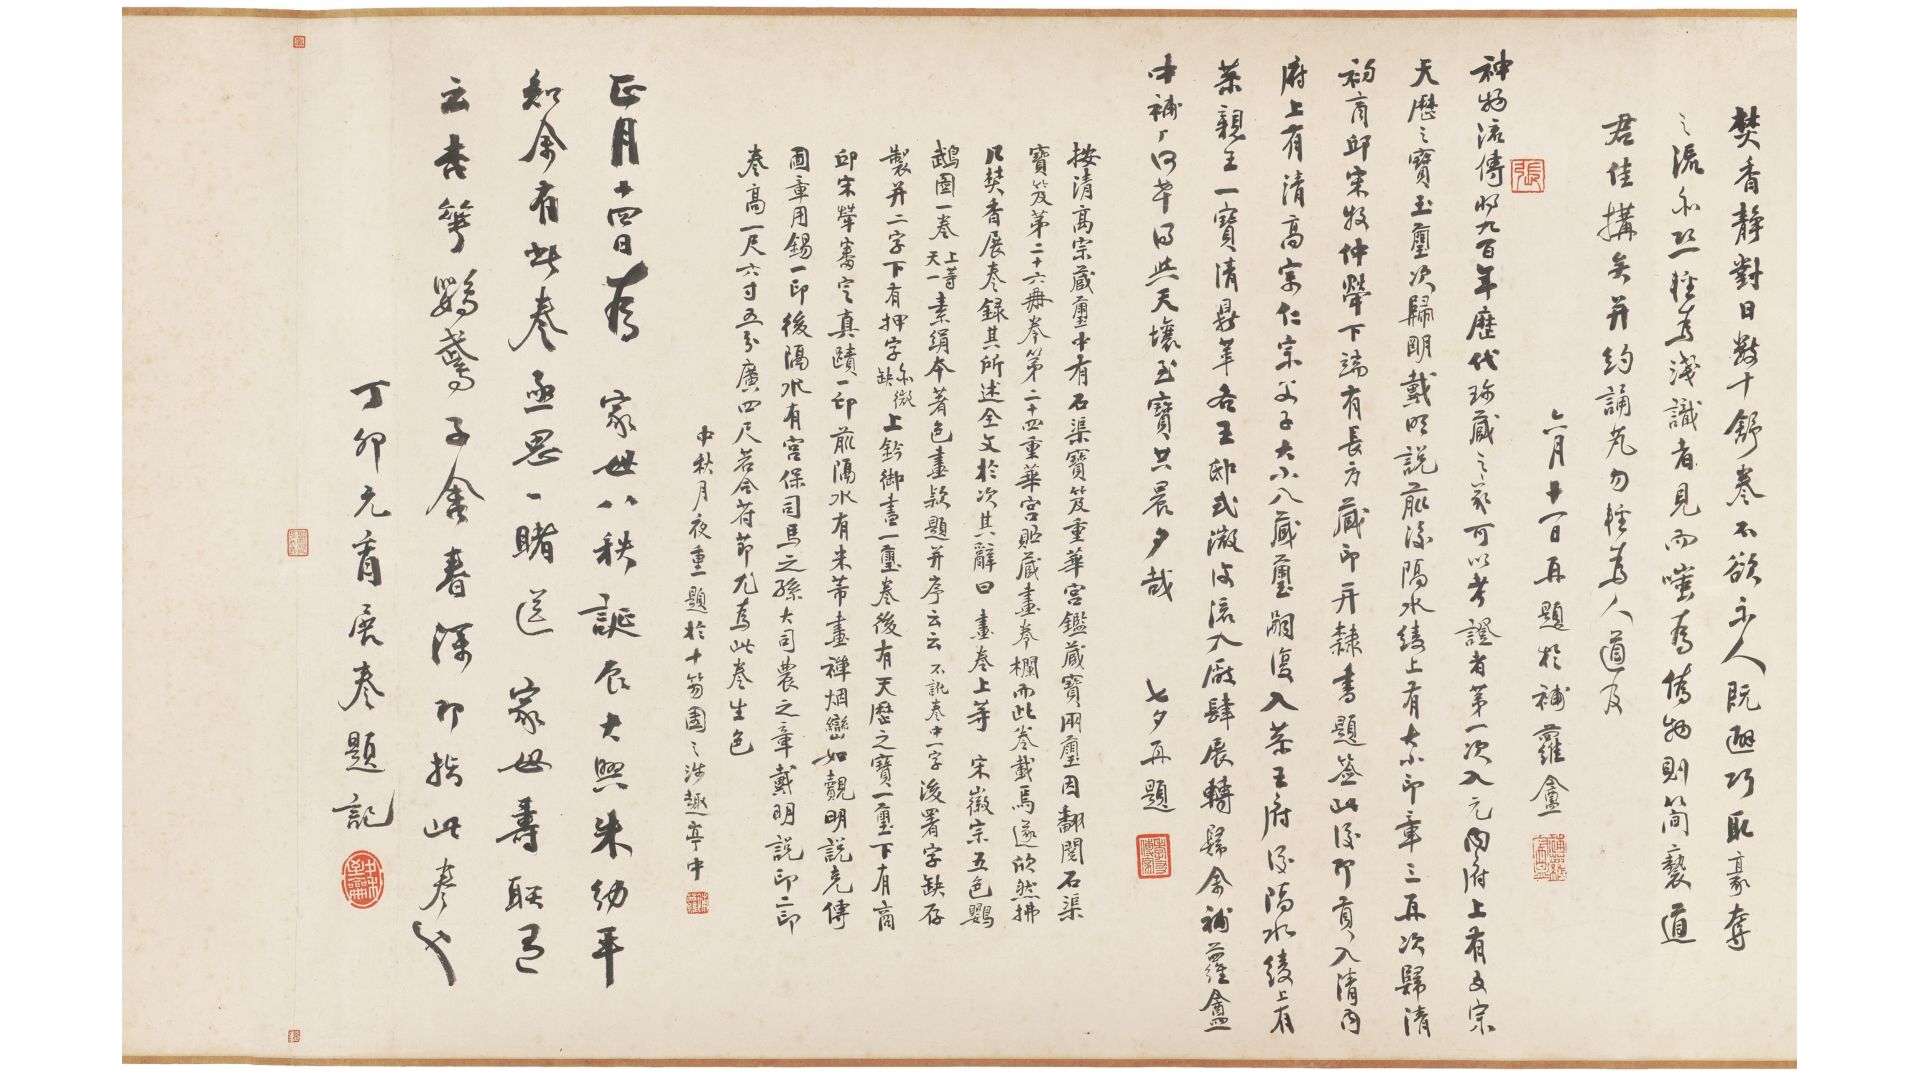 焚香靜對日數十舒卷不欲示人既逥巧取豪奪
之流亦恐輕為淺識者見而嗤為偽物則簡褻道
君佳搆矣并約誦芃勿輕為人道及
六月十一日再題於補蘿盦
張
神物流傳將九百年歷代珍藏之家可以考證者第一次入元內府上有文宗
天歷之寶玉璽次歸明戴明說前後隔水綾上有大小印章三再次歸清
初商邱宋牧仲犖下端有長方藏印并隸書題簽此後即貢入清內
府上有清高宗仁宗父子大小八藏璽嗣復入恭王府後隔水綾上有
恭親王一寶清鼎革各王邸式微後流入廠肆展轉歸余補蘿盦
中補丁何幸得與天壤至寶共晨夕哉　七夕再題
按清高宗藏璽中有石渠寶笈重華宮鑑藏寶兩璽因翻閱石渠
寶笈第二十六冊卷第二十四重華宮貯藏畫卷欄而此卷載焉遂欣然拂
几焚香展卷錄其所述全文於次其辭曰　畫卷上等　宋徽宗五色鸚
鵡圖一卷上等天一素絹本著色畫款題并序云云不訛卷中一字後署字缺存
製并二字下有押字亦微缺上鈐御畫一璽卷後有天歷之寶一璽下有商
邱宋犖審定真蹟一印前隔水有米芾畫禪烟巒如覿明說克傳
圖章用錫一印後隔水有宮保司馬之孫大司農之章戴明說印二印
卷高一尺六寸五分廣四尺若合符節尤為此卷生色
中秋月夜重一題於十笏園之涉趣亭中
正月十四日為　家母八秩誕辰大興朱幼平
知余有此卷亟思一睹送　家母壽聯有
云杏華鸚鵡子盦春深即指此卷也
丁卯元宵展卷題記